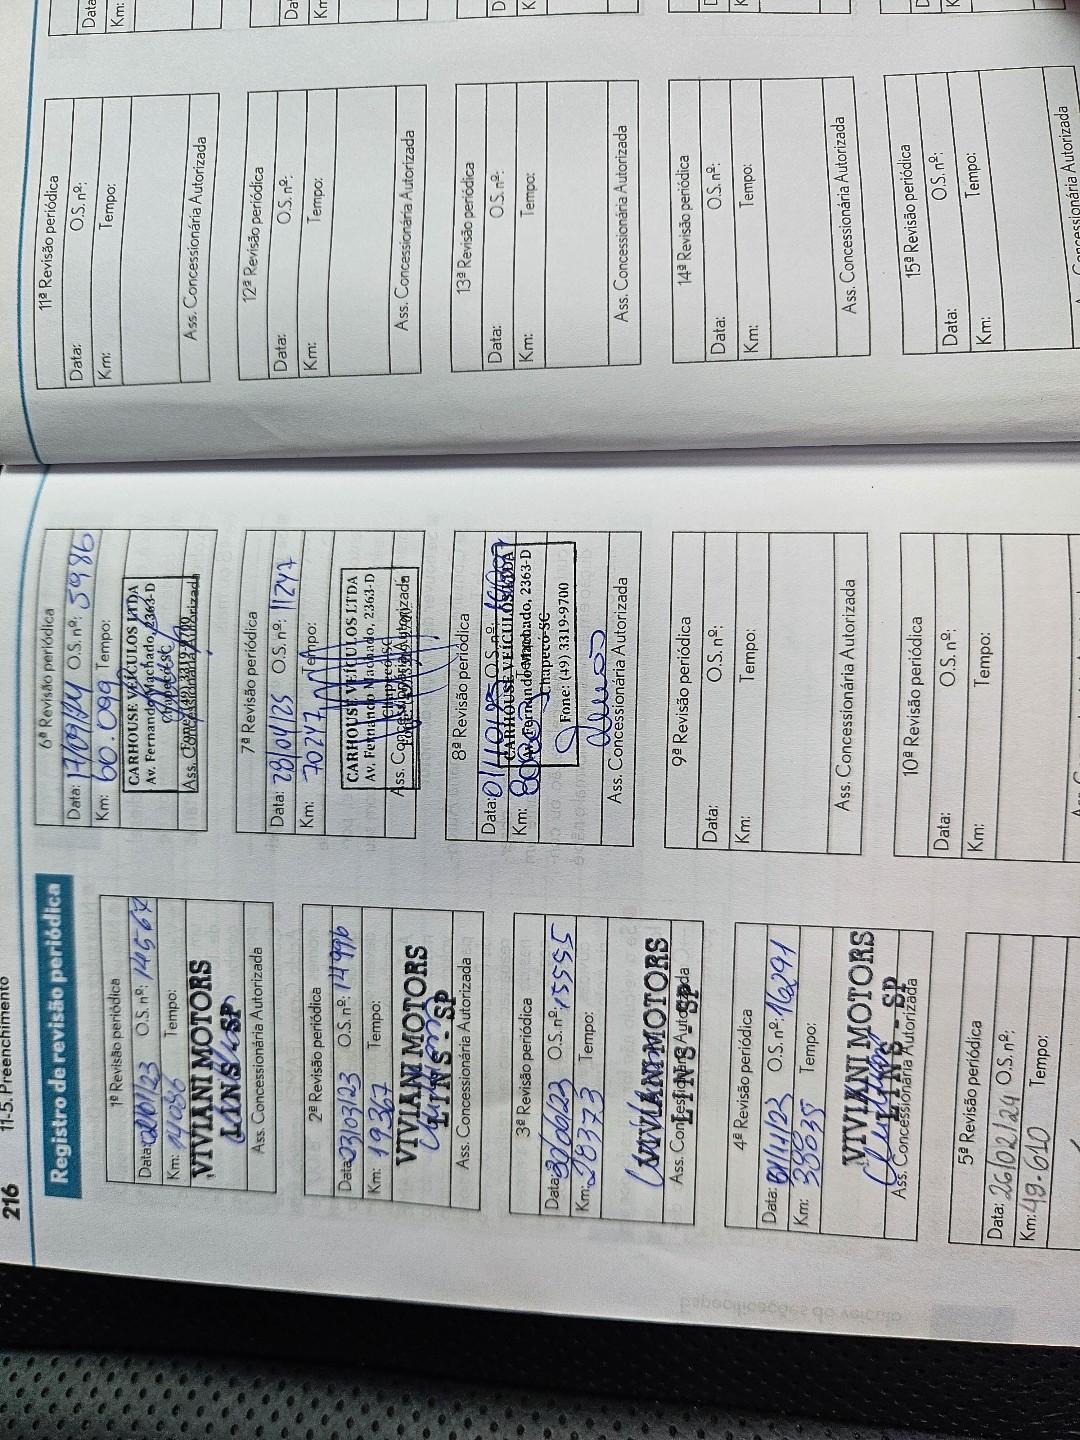 216
11-5. Preenchimento
Registro de revisão periódica
1ª Revisão periódica
Data: /01/23 O.S. nº: 14567
Km: 14086 Tempo:
VIVIANI MOTORS
LINS - SP
Ass. Concessionária Autorizada
2ª Revisão periódica
Data: 03/03/23 O.S. nº: 14996
Km: 19367 Tempo:
VIVIANI MOTORS
LINS - SP
Ass. Concessionária Autorizada
3ª Revisão periódica
Data: 30/06/23 O.S. nº: 15555
Km: 28373 Tempo:
VIVIANI MOTORS
LINS - SP
Ass. Concessionária Autorizada
4ª Revisão periódica
Data: 01/11/23 O.S. nº: 16291
Km: 38635 Tempo:
VIVIANI MOTORS
LINS - SP
Ass. Concessionária Autorizada
5ª Revisão periódica
Data: 26/02/24 O.S. nº:
Km: 49.610 Tempo:
6ª Revisão periódica
Data: 17/09/24 O.S. nº: 5986
Km: 60.099 Tempo:
CARHOUSE VEÍCULOS LTDA
Av. Fernando Machado, 2363-D
Chapecó-SC
Fone: (49) 3319-9700
Ass. Concessionária Autorizada
7ª Revisão periódica
Data: 28/04/25 O.S. nº: 11247
Km: 70247 Tempo:
CARHOUSE VEÍCULOS LTDA
Av. Fernando Machado, 2363-D
Chapecó-SC
Ass. Concessionária Autorizada
8ª Revisão periódica
Data: 01/10/25 O.S. nº:
Km: Tempo:
CARHOUSE VEÍCULOS LTDA
Av. Fernando Machado, 2363-D
Chapecó-SC
Fone: (49) 3319-9700
Ass. Concessionária Autorizada
9ª Revisão periódica
Data: O.S. nº:
Km: Tempo:
Ass. Concessionária Autorizada
10ª Revisão periódica
Data: O.S. nº:
Km: Tempo:
11ª Revisão periódica
Data: O.S. nº:
Km: Tempo:
Ass. Concessionária Autorizada
12ª Revisão periódica
Data: O.S. nº:
Km: Tempo:
Ass. Concessionária Autorizada
13ª Revisão periódica
Data: O.S. nº:
Km: Tempo:
Ass. Concessionária Autorizada
14ª Revisão periódica
Data: O.S. nº:
Km: Tempo:
Ass. Concessionária Autorizada
15ª Revisão periódica
Data: O.S. nº:
Km: Tempo:
Concessionária Autorizada
Data
Km: